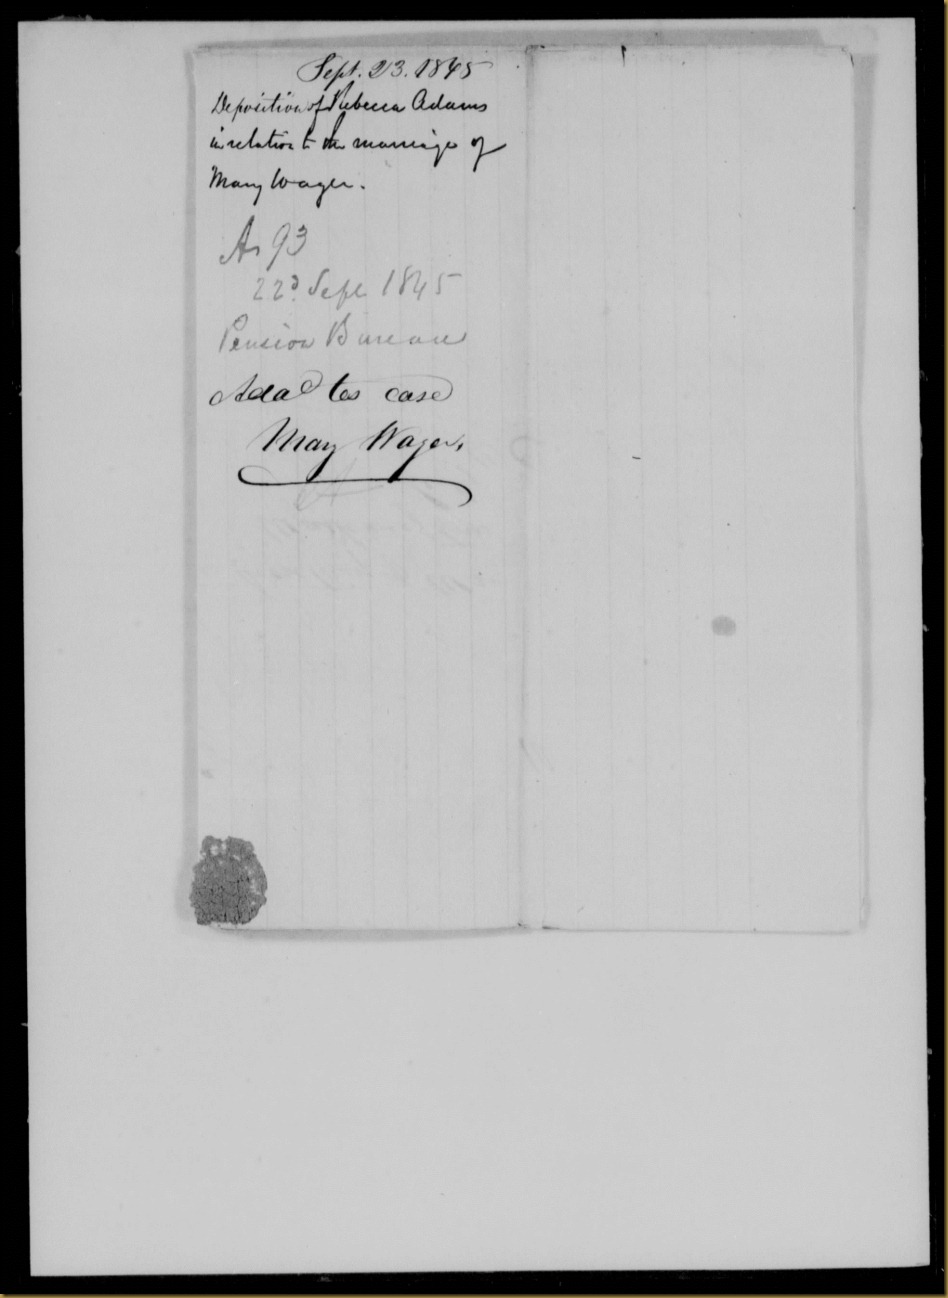 Sept. 23. 1845
Deposition of Rebecca Adams
in relation to the marriage of
Mary Wager.
A. 93
22d Sept 1845
Pension Bureau
Adad to case
Mary Wager.